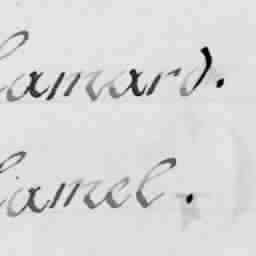 amard.
amel.